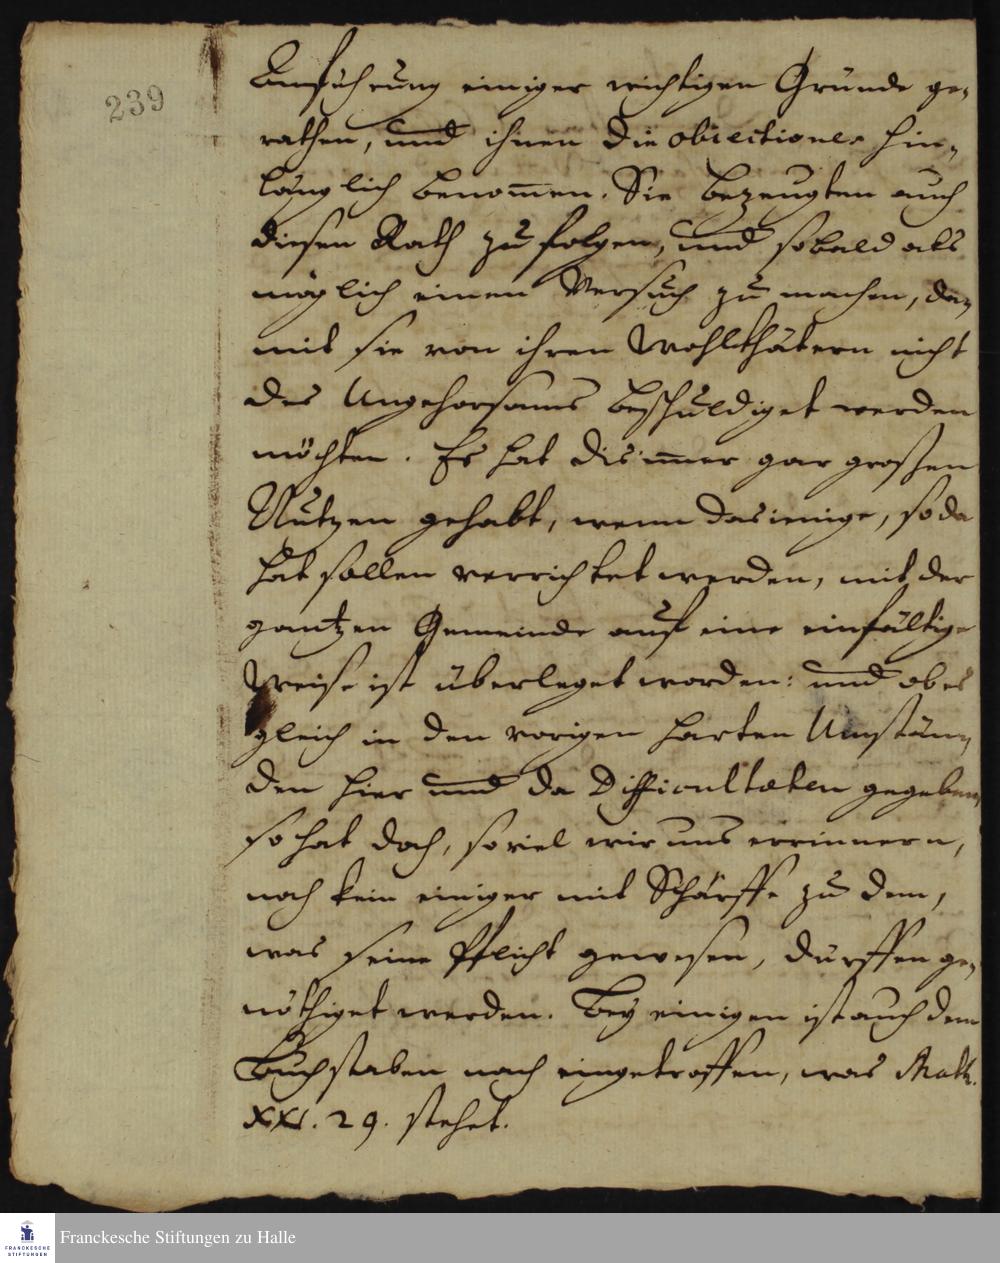 239
Anführung einiger wichtigen Gründe ge-
rathen, und ihnen die obiectiones hin-
länglich benom̅en. Sie bezeugten auch
diesen Rath zu folgen, und sobald als
möglich einen Versuch zu machen, da-
mit sie von ihren Wohlthätern nicht
des Ungehorsams beschuldiget werden
möchten. Es hat dis im̅er gar großen
Nutzen gehabt, wenn dasienige, so da
hat sollen verrichtet werden, mit der
gantzen Gemeinde auf eine einfältige
Weise ist überleget worden: und ob es
gleich in den vorigen harten Umstän-
den hier und da Difficultæten gegeben,
so hat doch, so viel wir uns errinnern,
noch kein einiger mit Schärffe zu dem,
was seine Pflicht gewesen, dürffen ge-
nöthiget werden. Bey einigen ist auch dem
Buchstaben nach eingetroffen, was Matth.
XXI. 29. stehet.
FRANCKESCHE
STIFTUNGEN
Franckesche Stiftungen zu Halle